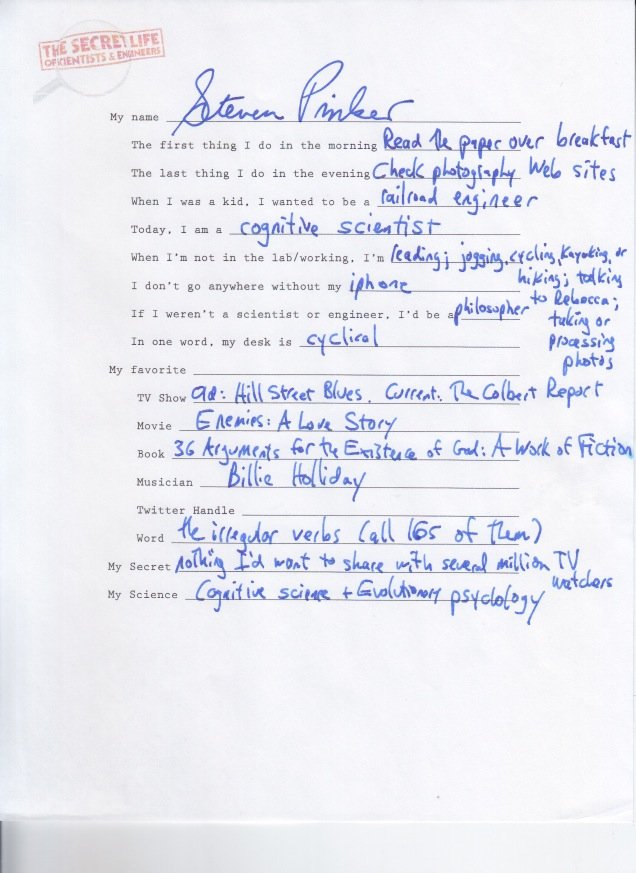 THE SECRET LIFE
OF SCIENTISTS & ENGINEERS
My name Steven Pinker
The first thing I do in the morning Read the paper over breakfast
The last thing I do in the evening Check photography Web sites
When I was a kid, I wanted to be a railroad engineer
Today, I am a cognitive scientist
When I'm not in the lab/working, I'm reading; jogging, cycling, kayaking, or
hiking; talking
to Rebecca;
taking or
processing
photos
I don't go anywhere without my iphone
If I weren't a scientist or engineer, I'd be a philosopher
In one word, my desk is cyclical
My favorite
TV Show Old: Hill Street Blues. Current: The Colbert Report
Movie Enemies: A Love Story
Book 36 Arguments for the Existence of God: A Work of Fiction
Musician Billie Holliday
Twitter Handle
Word the irregular verbs (all 165 of them)
My Secret nothing I'd want to share with several million TV
watchers
My Science Cognitive science + Evolutionary psychology